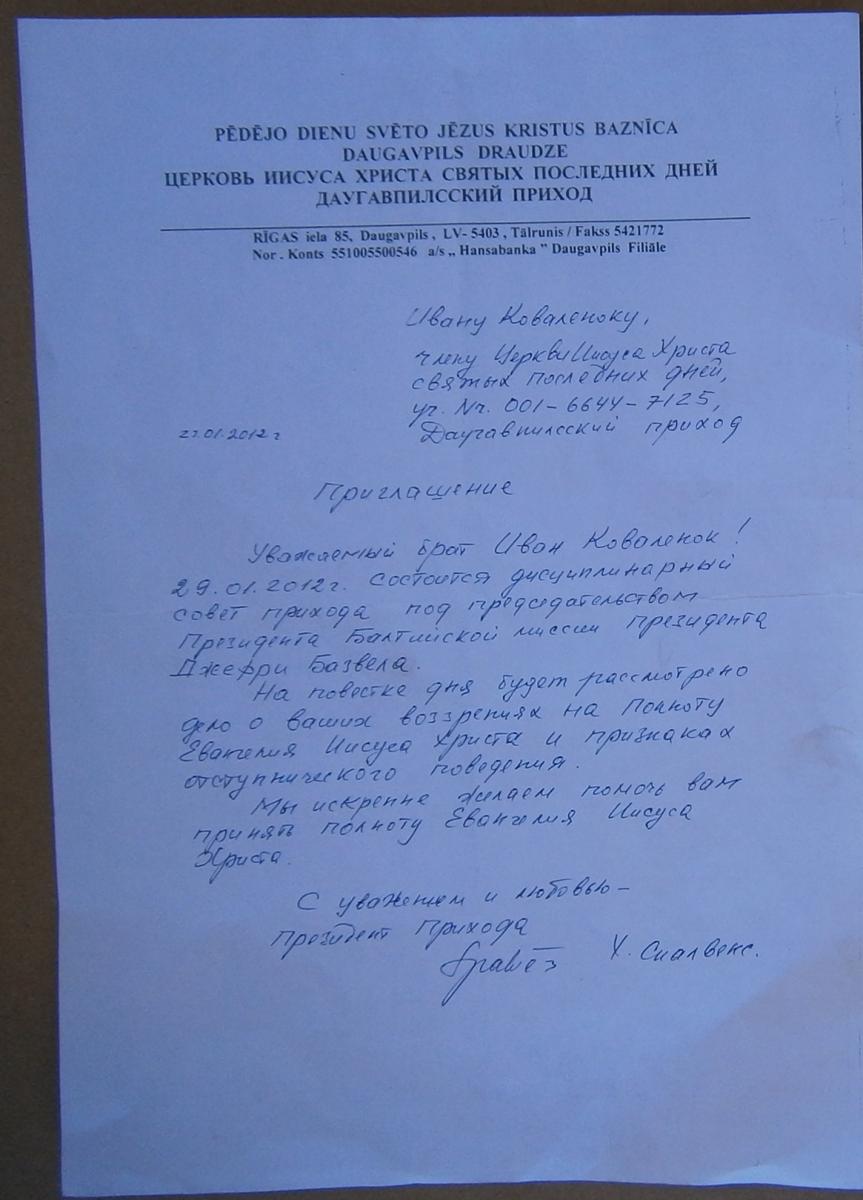 PĒDĒJO DIENU SVĒTO JĒZUS KRISTUS BAZNĪCA
DAUGAVPILS DRAUDZE
ЦЕРКОВЬ ИИСУСА ХРИСТА СВЯТЫХ ПОСЛЕДНИХ ДНЕЙ
ДАУГАВПИЛССКИЙ ПРИХОД
RĪGAS iela 85, Daugavpils, LV-5403, Tālrunis / Fakss 5421772
Nor. Konts 551005500546 a/s „ Hansabanka ” Daugavpils Filiāle
Ивану Коваленоку,
члену Церкви Иисуса Христа
святых последних дней,
уч. Nr. 001-6644-7125,
Даугавпилсский приход
01.2012 г
Приглашение
Уважаемый брат Иван Коваленок!
29.01.2012г. состоится дисциплинарный
совет прихода под председательством
Президента Балтийской миссии президента
Джефри Базвела.
На повестке дня будет рассмотрено
дело о ваших воззрениях на Полноту
Евангелия Иисуса Христа и признаках
отступнического поведения.
Мы искренне желаем помочь вам
принять полноту Евангелия Иисуса
Христа.
С уважением и любовью –
Президент Прихода
Х. Скалвенс.